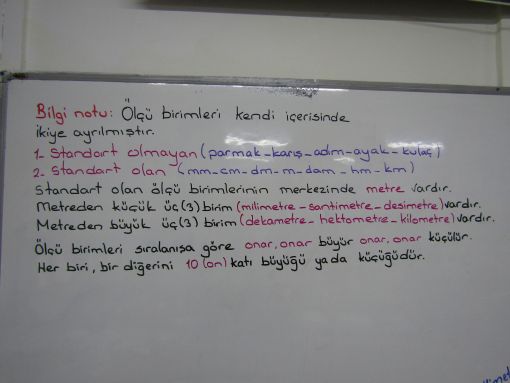 Bilgi notu: Ölçü birimleri kendi içerisinde
ikiye ayrılmıştır.
1- Standart olmayan (parmak-karış-adım-ayak-kulaç)
2- Standart olan (mm-cm-dm-m-dam-hm-km)
Standart olan ölçü birimlerinin merkezinde metre vardır.
Metreden küçük üç(3) birim (milimetre-santimetre-desimetre) vardır.
Metreden büyük üç(3) birim (dekametre-hektometre-kilometre) vardır.
Ölçü birimleri sıralanışa göre onar, onar büyür onar, onar küçülür.
Her biri, bir diğerini 10 (on) katı büyüğü yada küçüğüdür.